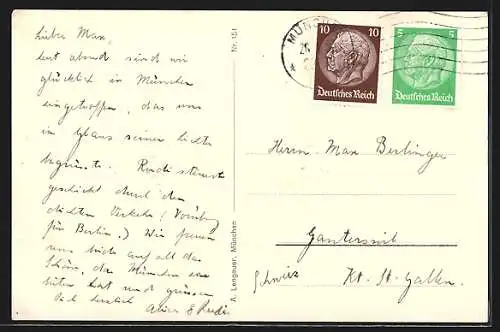 Lieber Max,
heut abend sind wir
glücklich in München
eingetroffen, das uns
im Glanz seiner Lichter
begrüsste. Rudi steuert
geschickt durch den
dichten Verkehr (Vorübg
für Berlin.) Wir freuen
uns auf all das
Schöne, das München zu
bieten hat und grüssen
Dich herzlich
Alice & Rudi
Nr. 151
A. Lengauer, München
MÜNCHE
10 10
Deutsches Reich
5 5
Deutsches Reich
Herrn Max Bertinger
Ganterswil
Schweiz Kt. St. Gallen